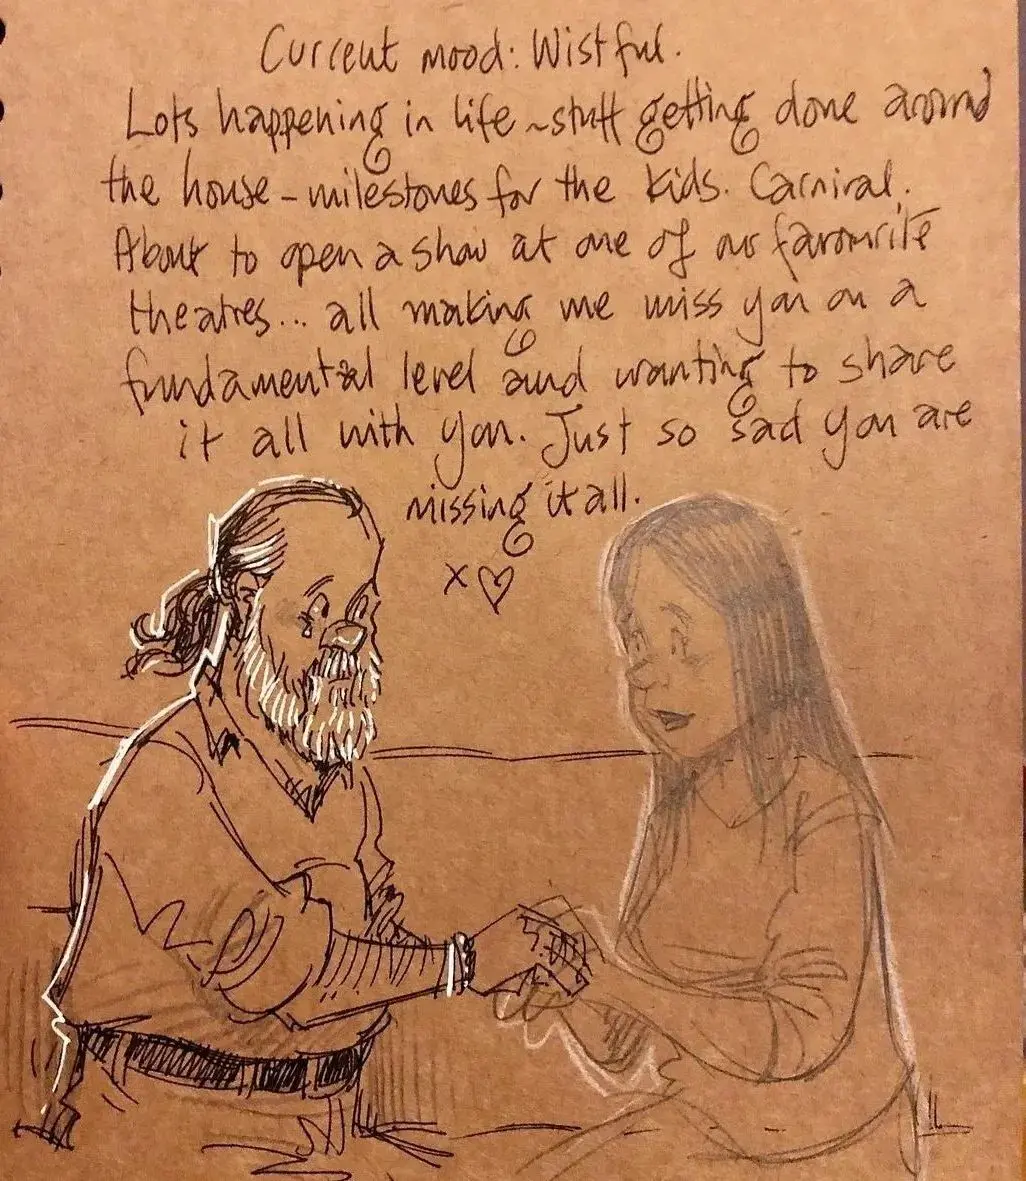 Current mood: Wistful.
Lots happening in life ~ stuff getting done around
the house - milestones for the kids. Carnival.
About to open a show at one of our favourite
theatres... all making me miss you on a
fundamental level and wanting to share
it all with you. Just so sad you are
missing it all.
x♡